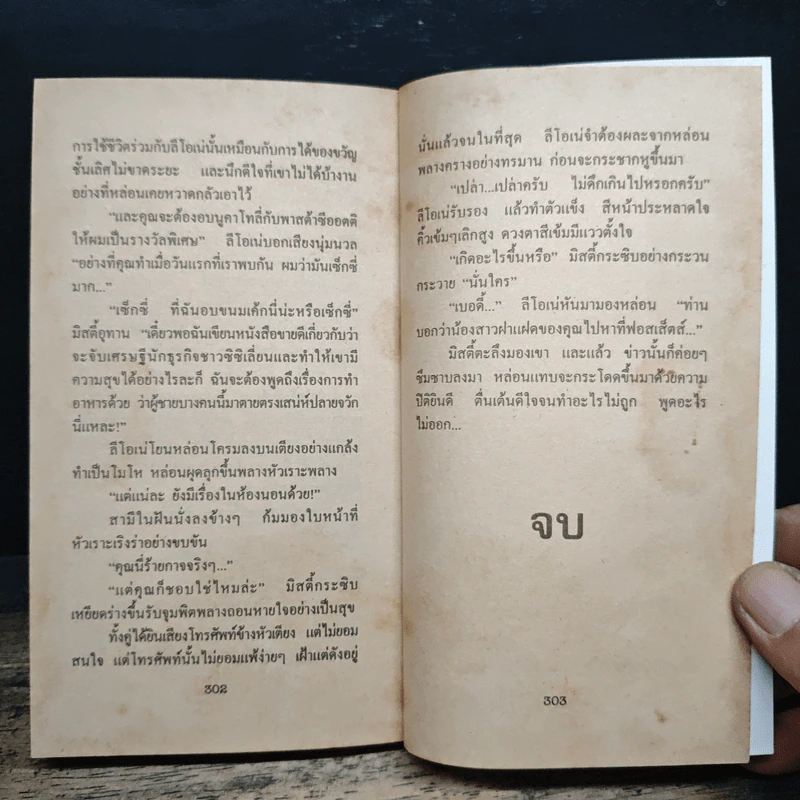 การใช้ชีวิตร่วมกับลีโอเน่นั้นเหมือนกับการได้ของขวัญ
ชั้นเลิศไม่ขาดระยะ และนึกดีใจที่เขาไม่ได้บ้างาน
อย่างที่หล่อนเคยหวาดกลัวเอาไว้
“และคุณจะต้องอบนูคาโทลี่กับพาสต้าซีออตติ
ให้ผมเป็นรางวัลพิเศษ” ลีโอเน่บอกเสียงนุ่มนวล
“อย่างที่คุณทำเมื่อวันแรกที่เราพบกัน ผมว่ามันเซ็กซี่
มาก...”
“เซ็กซี่ ที่ฉันอบขนมเค้กนี่น่ะหรือเซ็กซี่”
มิสตี้อุทาน “เดี๋ยวพอฉันเขียนหนังสือขายดีเกี่ยวกับว่า
จะจับเศรษฐีนักธุรกิจชาวซิซิเลี่ยนและทำให้เขามี
ความสุขได้อย่างไรละก็ ฉันจะต้องพูดถึงเรื่องการทำ
อาหารด้วย ว่าผู้ชายบางคนนี่มาตายตรงเสน่ห์ปลายจวัก
นี่แหละ!”
ลีโอเน่โยนหล่อนโครมลงบนเตียงอย่างแกล้ง
ทำเป็นโมโห หล่อนผุดลุกขึ้นพลางหัวเราะพลาง
“แต่แน่ละ ยังมีเรื่องในห้องนอนด้วย!”
สามีในฝันนั่งลงข้างๆ ก้มมองใบหน้าที่
หัวเราะเริงร่าอย่างขบขัน
“คุณนี่ร้ายกาจจริงๆ...”
“แต่คุณก็ชอบใช่ไหมล่ะ” มิสตี้กระซิบ
เหยียดร่างขึ้นรับจุมพิตพลางถอนหายใจอย่างเป็นสุข
ทั้งคู่ได้ยินเสียงโทรศัพท์ข้างหัวเตียง แต่ไม่ยอม
สนใจ แต่โทรศัพท์นั้นไม่ยอมแพ้ง่ายๆ เฝ้าแต่ดังอยู่
302
นั่นแล้วจนในที่สุด ลีโอเน่จำต้องผละจากหล่อน
พลางครางอย่างทรมาน ก่อนจะกระชากหูขึ้นมา
“เปล่า...เปล่าครับ ไม่ดึกเกินไปหรอกครับ”
ลีโอเน่รับรอง แล้วทำตัวแข็ง สีหน้าประหลาดใจ
คิ้วเข้มๆเลิกสูง ดวงตาสีเข้มมีแววตั้งใจ
“เกิดอะไรขึ้นหรือ” มิสตี้กระซิบอย่างกระวน
กระวาย “นั่นใคร”
“เบอดี้...” ลีโอเน่หันมามองหล่อน “ท่าน
บอกว่าน้องสาวฝาแฝดของคุณไปหาที่ฟอสเส็ตส์...”
มิสตี้ตะลึงมองเขา และแล้ว ข่าวนั้นก็ค่อยๆ
ซึมซาบลงมา หล่อนแทบจะกระโดดขึ้นมาด้วยความ
ปิติยินดี ตื่นเต้นดีใจจนทำอะไรไม่ถูก พูดอะไร
ไม่ออก...
จบ
303